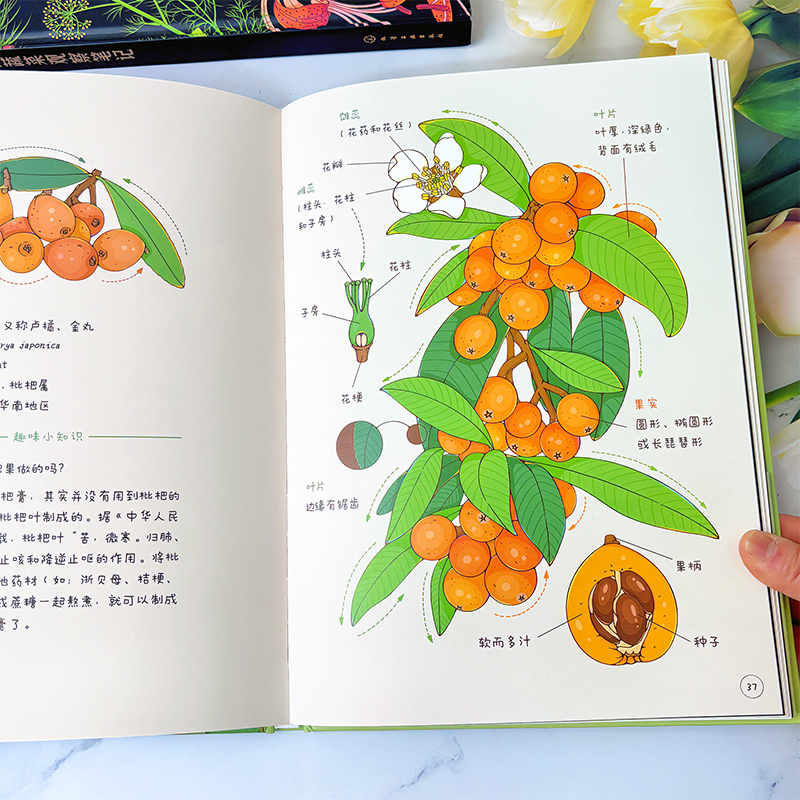 蔬菜观察笔记
化学工业出版社
又称卢橘、金丸
rya japonica
，枇杷属
华南地区
趣味小知识
果做的吗？
杷膏，其实并没有用到枇杷的
枇杷叶制成的。据《中华人民
载，枇杷叶“苦，微寒。归肺、
止咳和降逆止呕的作用。将枇
他药材（如：浙贝母、桔梗、
或蔗糖一起熬煮，就可以制成
膏了。
雄蕊
（花药和花丝）
花瓣
雌蕊
（柱头、花柱
和子房）
柱头
花柱
子房
花梗
叶片
边缘有锯齿
叶片
叶厚，深绿色，
背面有绒毛
果实
圆形、椭圆形
或长琵琶形
果柄
软而多汁
种子
37